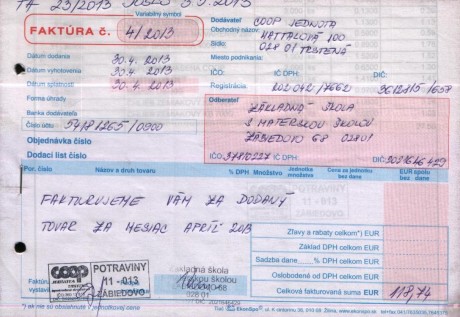 23/2013
Variabilný symbol
FAKTÚRA č. 4/2013
Dodávateľ COOP JEDNOTA
Obchodný názov HATTALOVÁ 100
Sídlo 028 01 TRSTENÁ
Miesto podnikania:
Dátum dodania 30.4. 2013
Dátum vyhotovenia 30.4. 2013
Dátum splatnosti 30.4. 2013
IČO: IČ DPH: DIČ:
Registrácia
Forma úhrady
Banka dodávateľa
Číslo účtu
Objednávka číslo
Dodací list číslo
Odberateľ
ZÁKLADNÁ ŠKOLA
S MATERSKOU ŠKOLOU
ZÁBIEDOVO 68 02801
IČO: 37810227 IČ DPH DIČ:
Por. číslo Názov a druh tovaru % DPH Množstvo Jednotka množstva Cena za jednotku bez dane EUR spolu bez dane
FAKTURUJEME VÁM ZA DODANÝ
TOVAR ZA MESIAC APRÍL 2013
Zľavy a rabaty celkom*) EUR
Základ DPH celkom EUR
Sadzba dane % DPH celkom EUR
Oslobodené od DPH celkom EUR
Celkom fakturovaná suma EUR 118,74
COOP
JEDNOTA
POTRAVINY
11 - 013
ZÁBIEDOVO
028 01
*) ak nie sú obsiahnuté v jednotkovej cene